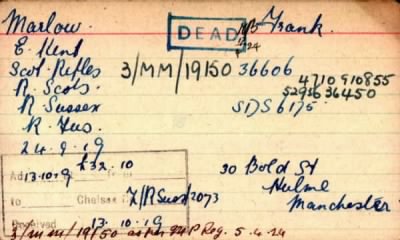 Marlow. DEAD Frank.
E. Kent
Scot Rifles 3/MM/19150 36606
R. Scots. 4710910855
5295636450
R Sussex SDS 6175
R. Fus.
24.9.19
£32.10 30 Bold St
Hulme
Manchester
13.10.19
to Chelsea
Z/RSusx/2073
Received 13.10.19
3/MM/19150 as per MP Reg. 5.4.24